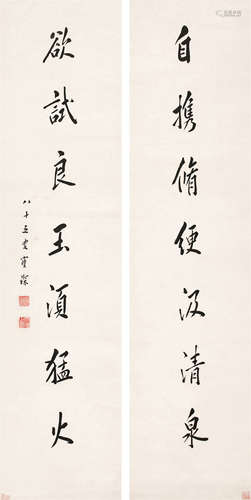 自携脩绠汲清泉
欲試良玉須猛火
八十五叟寳琛